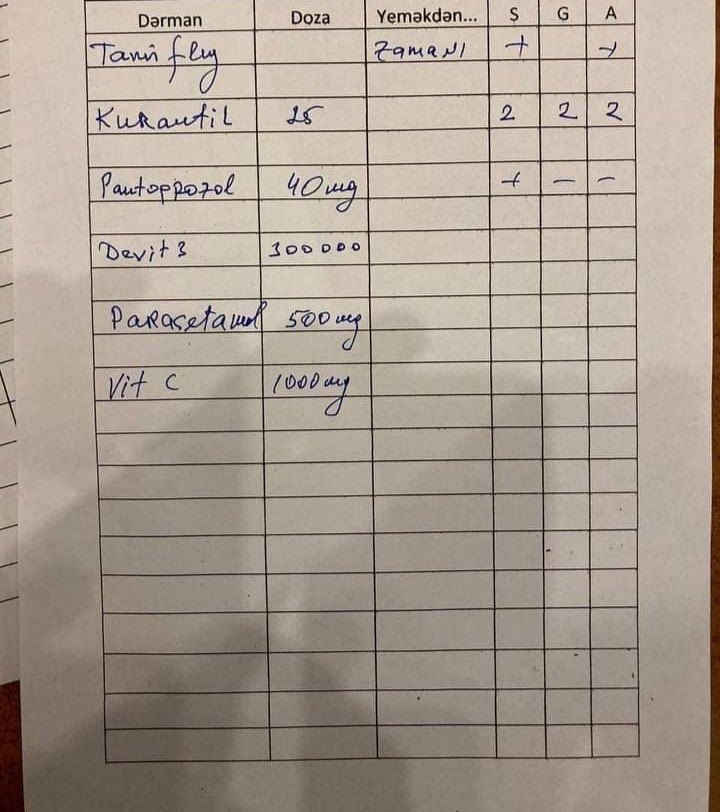 Dərman Doza Yeməkdən... S G A
Tamiflu Zamanı + +
Kurantil 25 2 2 2
Pantoprozol 40 mg + – –
Devit 3 300 000
Parasetamol 500 mg
Vit C 1000 mg